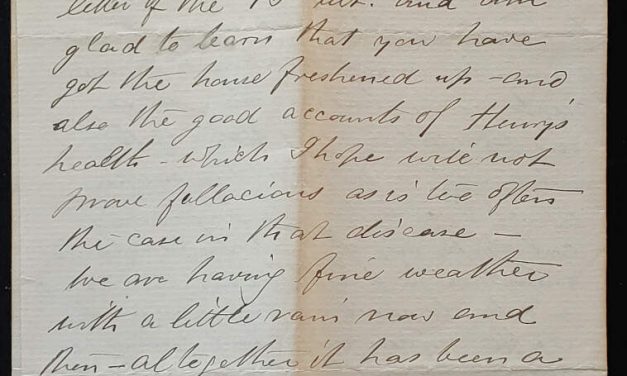 letter of the 13 ult. and am
glad to learn that you have
got the house freshened up - and
also the good accounts of Henry's
health - which I hope will not
prove fallacious as is too often
the case in that disease -
We are having fine weather
with a little rain now and
then - altogether it has been a